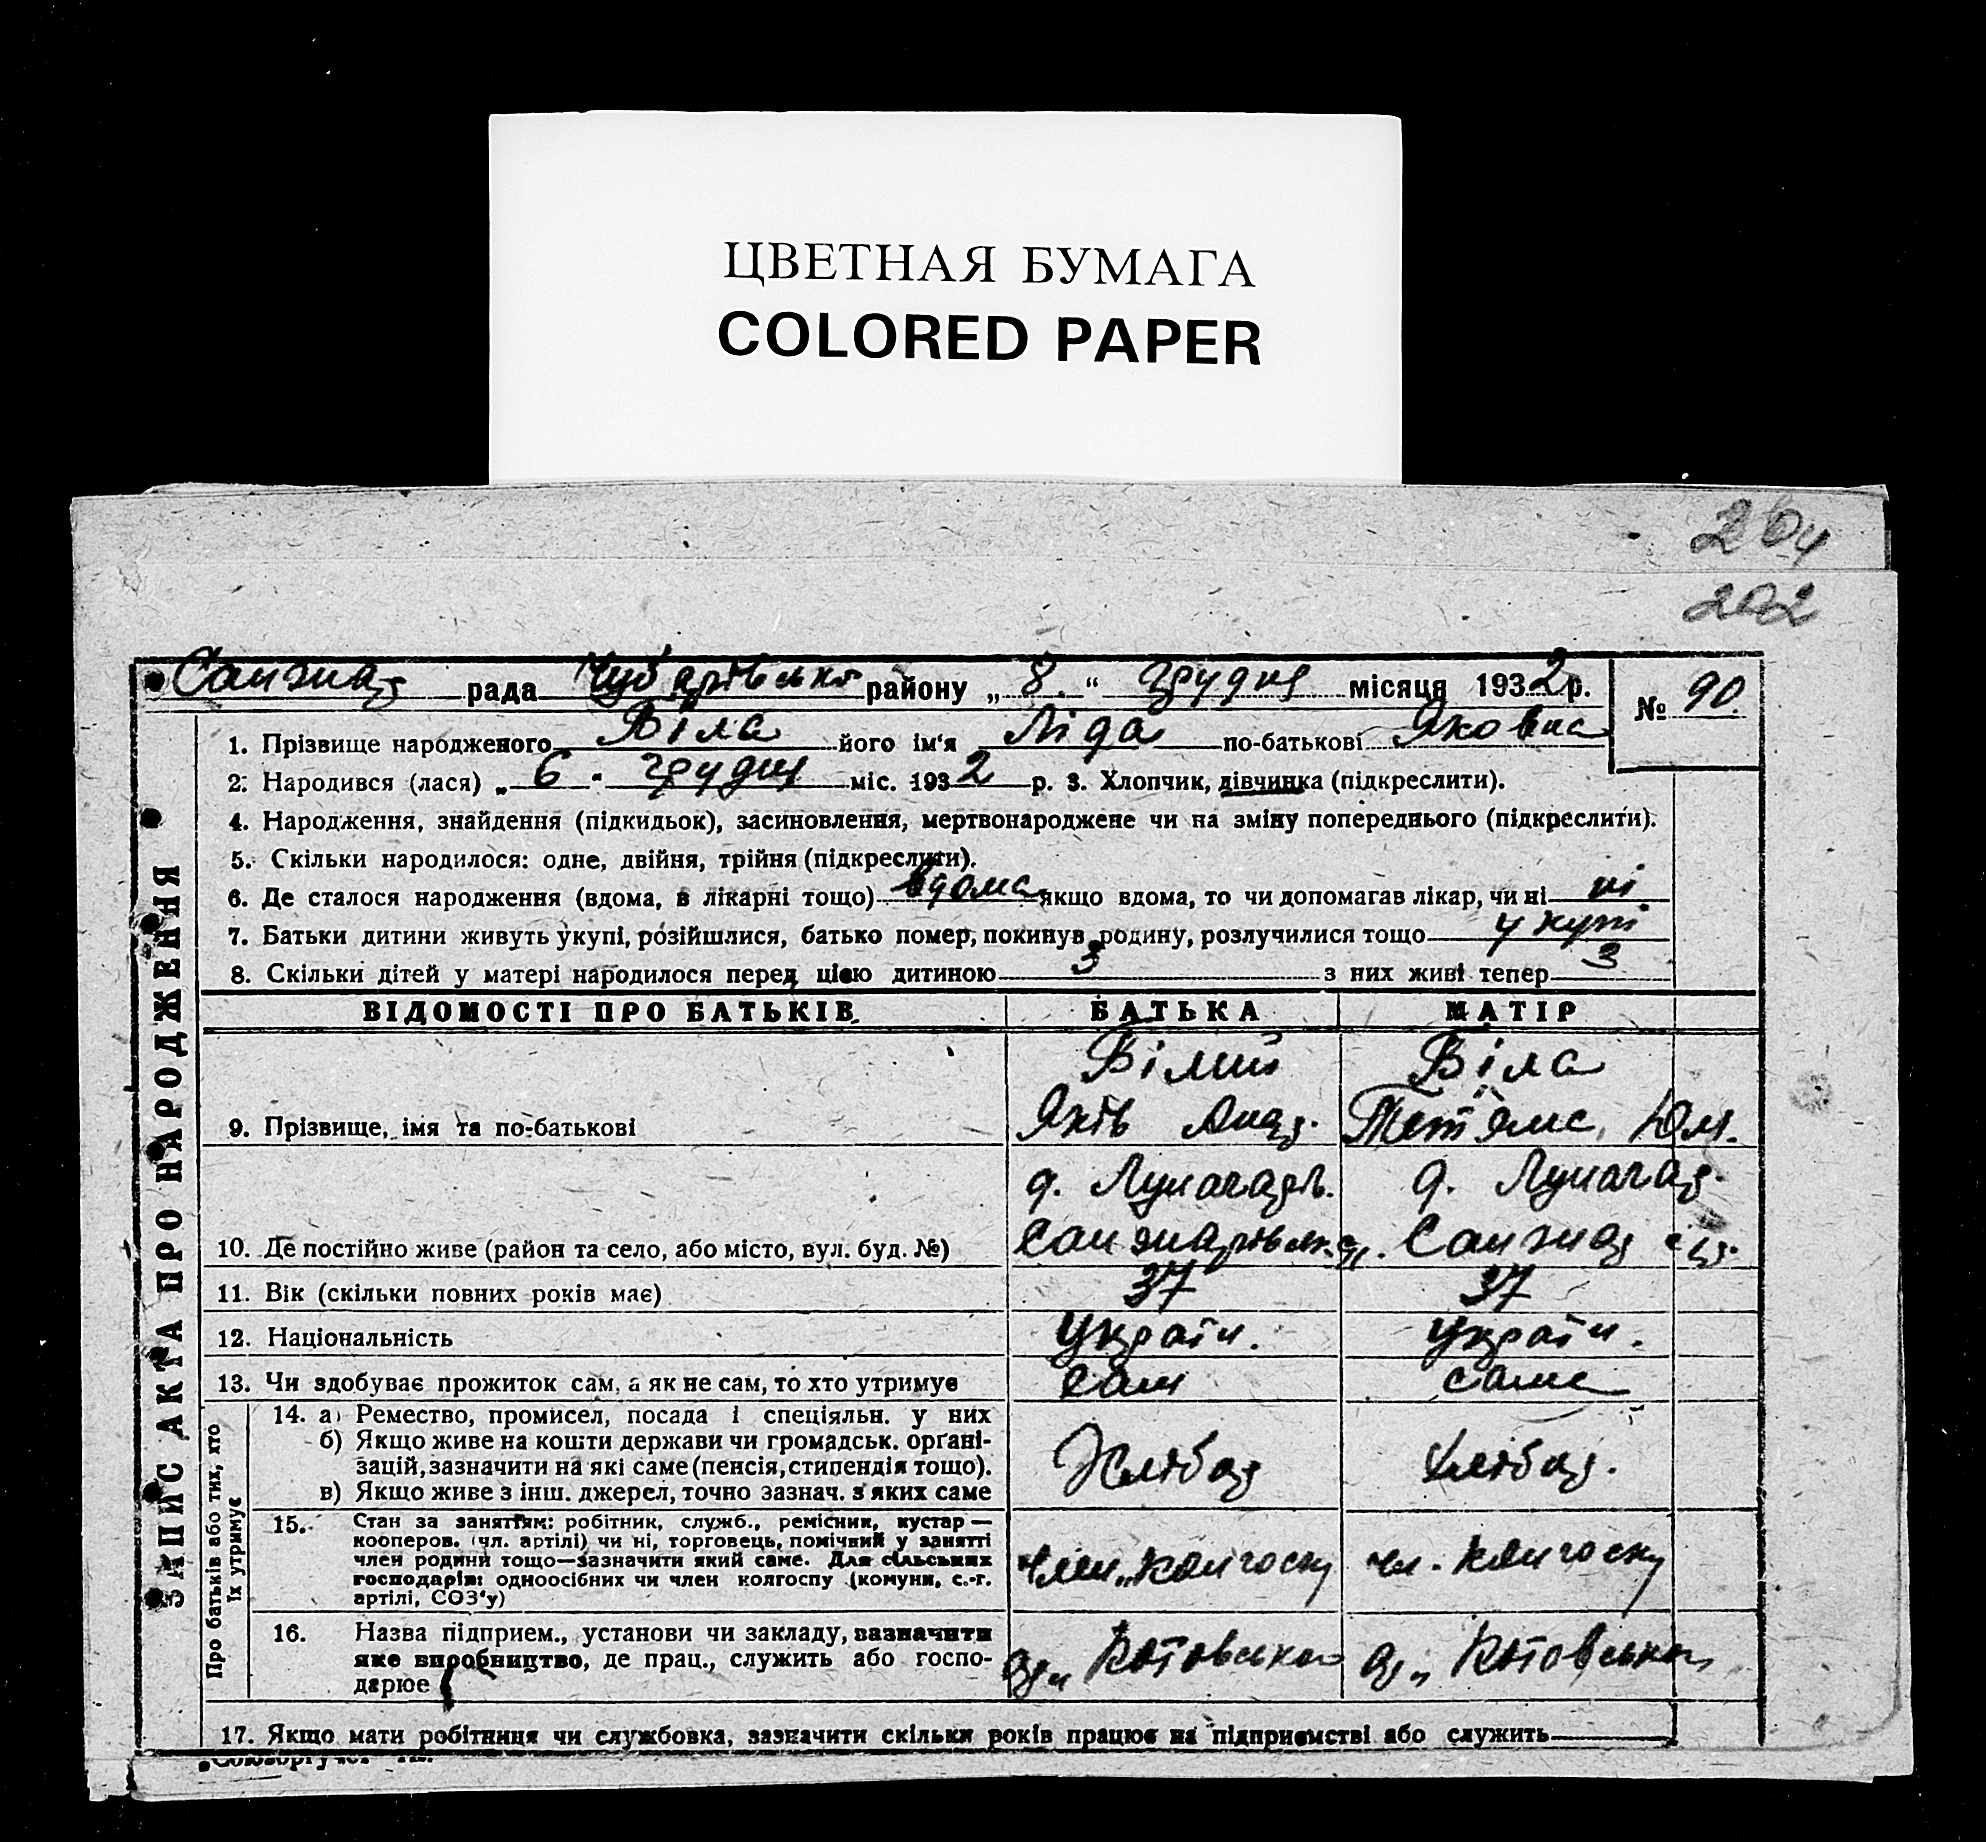 ЦВЕТНАЯ БУМАГА
COLORED PAPER
204
202
Санжар рада Чубарівського району „ 8 “ грудня місяця 1932 р. № 90.
1. Прізвище народженого Біла його ім'я Ліда по-батькові Яковна
2. Народився (лася) „ 6 “ грудня міс. 1932 р. 3. Хлопчик, дівчинка (підкреслити).
4. Народження, знайдення (підкидьок), засиновлення, мертвонароджене чи на зміну попереднього (підкреслити).
5. Скільки народилося: одне, двійня, трійня (підкреслити).
6. Де сталося народження (вдома, в лікарні тощо) вдома якщо вдома, то чи допомагав лікар, чи ні ні
7. Батьки дитини живуть укупі, розійшлися, батько помер, покинув родину, розлучилися тощо укупі
8. Скільки дітей у матері народилося перед цією дитиною 3 з них живі тепер 3
ЗАПИС АКТА ПРО НАРОДЖЕННЯ
ВІДОМОСТІ ПРО БАТЬКІВ БАТЬКА МАТІР
Білий Біла
9. Прізвище, імя та по-батькові Яків Тетяна
10. Де постійно живе (район та село, або місто, вул. буд. №) Санжар
11. Вік (скільки повних років має) 37 37
12. Національність Україн. Україн.
13. Чи здобуває прожиток сам, а як не сам, то хто утримує сам сама
Про батьків або тих, хто їх утримує
14. а) Ремество, промисел, посада і спеціяльн. у них
б) Якщо живе на кошти держави чи громадськ. органі-
зацій, зазначити на які саме (пенсія, стипендія тощо). Хлібор Хлібор.
в) Якщо живе з інш. джерел, точно зазнач. з яких саме
15. Стан за заняттям: робітник, служб., ремісник, кустар —
кооперов. (чл. артілі) чи ні, торговець, помічний у занятті
член родини тощо—зазначити який саме. Для сільських
господарів: одноосібних чи член колгоспу (комуни, с.-г.
артілі, СОЗ'у) член колгоспу чл. колгоспу
16. Назва підприєм., установи чи закладу, зазначити
яке виробництво, де прац., служить або госпо-
дарює Котовського Котовського
17. Якщо мати робітниця чи службовка, зазначити скільки років працює на підприємстві або служить